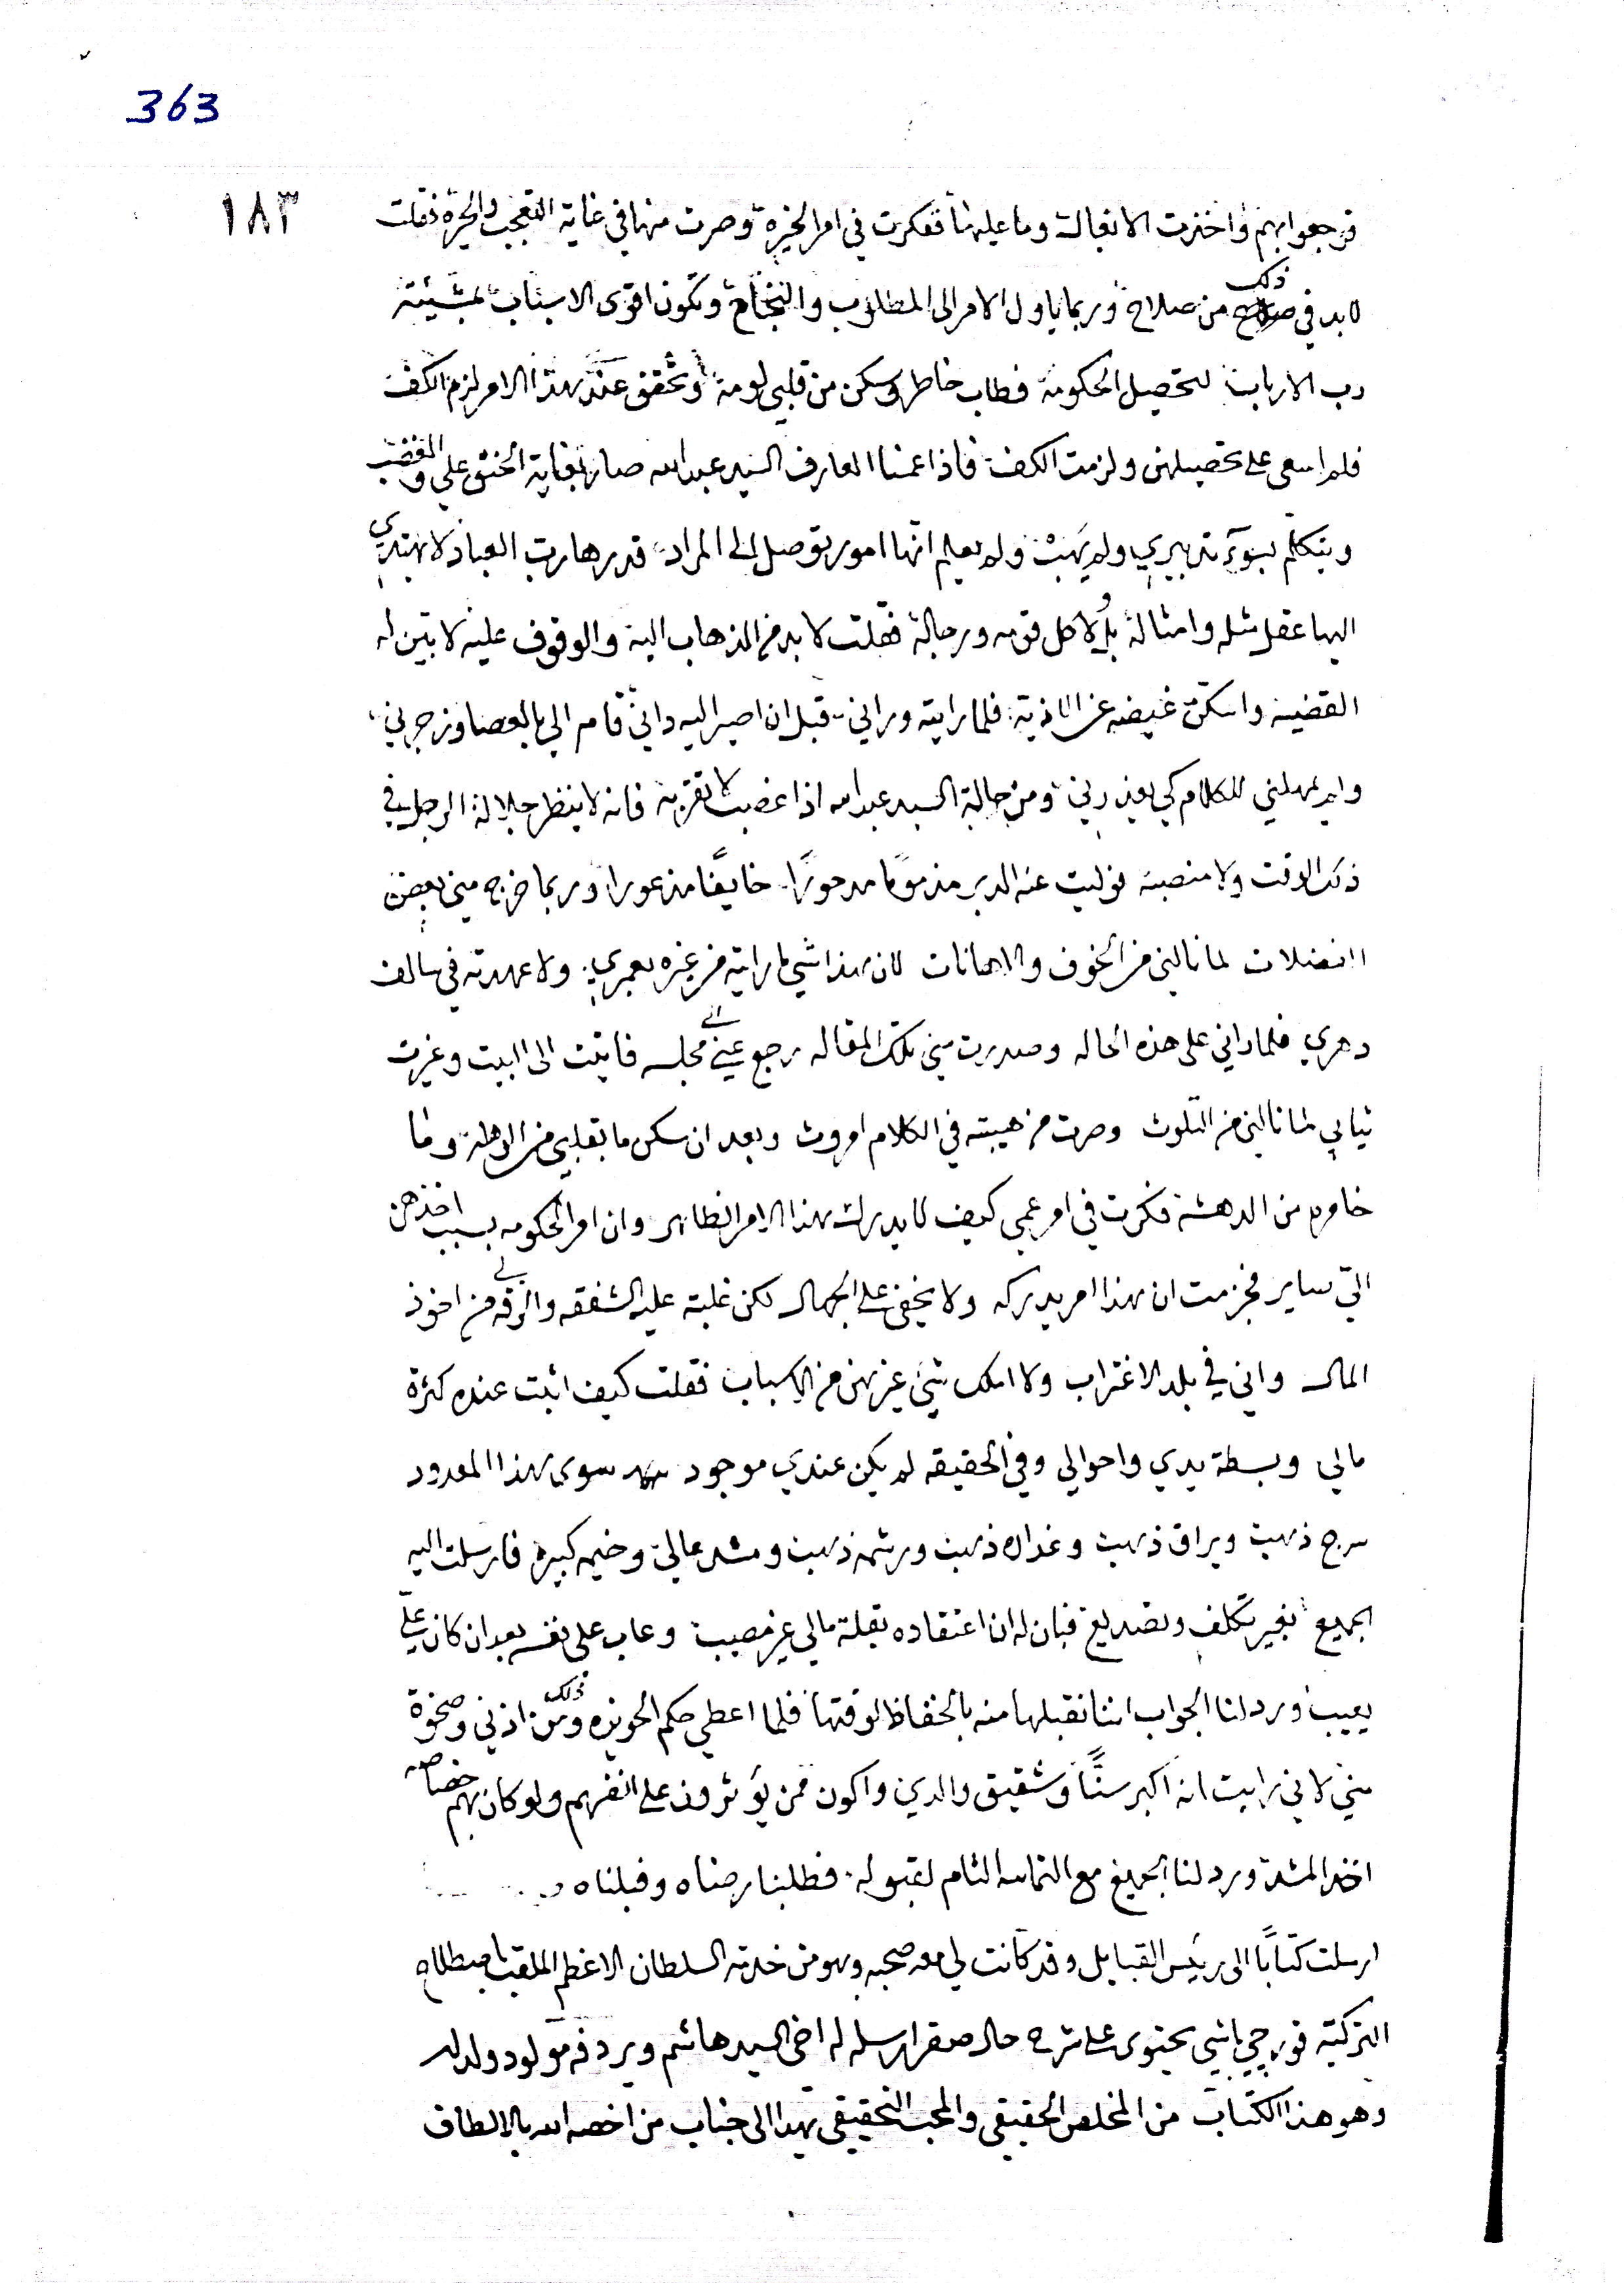 363
١٨٣
فرجعوا بهم واخترت الانفالة وما عليها ففكرت في امر الخيرة وصرت منها في غاية التعجب والحيرة فقلت
لا بد في ذلك من صلاح وربما ياول الامر الى المطلوب والنجاح وتكون اقوى الاسباب بمشيئة
رب الارباب لتحصيل الحكومة فطاب خاطر وسكن من قلبي لومة وتحقق عند هذا الامر لزم الكف
فلم اسعى على تحصيلهن ولزمت الكف فاذا عمنا العارف السيد عبدالله صار بغاية الحنق علي والغضب
ويتكلم بسوء تدبيري ولم يهب ولم يعلم انها امور توصل الى المراد قدرها رب العباد لا يهتدي
اليها عقل مثله وامثالة بل ولا كل قومه ورجالة فقلت لا بد من الذهاب اليه والوقوف عليه لابين له
القضيه واسكن غيضه عن الاذية فلما رايته وراني قبل ان اصير اليه واني قام الي بالعصا وزجرني
ولم يمهلني للكلام كي يعذرني ومن حالة السيد عبدالله اذا غضب لا تقربه فانه لا ينظر جلالة الرجل في
ذلك الوقت ولا منصبه فوليت عنه الدبر مذموما مدحورًا خايفًا مذعورا وربما خرج مني بعض
الفضلات لما نالني من الخوف والاهانات لان هذا شي ما رايته من غيره بعمري ولا عهدته في سالف
دهري فلما راني على هذه الحاله وصدرت مني تلك المقاله رجع عني الى مجلسه فاتيت الى البيت وغيرت
ثيابي لما نالني من التلوث وصرت من هيبته في الكلام اموث وبعد ان سكن ما بقلبي من الوهلة وما
خامره من الدهشه فكرت في امر عمي كيف لا يدرك هذا الامر الظاهر وان امر الحكومه بسبب اخذهن
الي ساير فجزمت ان هذا امر يدركه ولا يخفى على الجهال لكن غلبته عليه الشفقه والرقه لي من اخوذ
المال واني في بلد الاغتراب ولا املك شي غيرهن من الاسباب فقلت كيف اثبت عنده كثرة
مالي وبسطة يدي واحوالي وفي الحقيقه لم يكن عندي موجود سوى هذا المعدود
سرج ذهب ويراق ذهب وغداره ذهب ورشمه ذهب ومشد عالي وخيمه كبيرة فارسلت اليه
الجميع بغير تكلف وتصديع فبان له ان اعتقاده بقلة مالي غير مصيب وعاب على نفسه بعد ان كان علي
يعيب ورد لنا الجواب اننا نقبلها منه بالحفاظ لوقتها فلما اعطي حكم الحويزه وذلك من اذني وصخوة
مني لاني رايت انه اكبر سنًّا وشقيق والدي واكون ممن يؤثرون على انفسهم ولو كان بهم خصاصه
اخذ المشد ورد لنا الجميع مع التماسه التام لقبوله فطلبنا رضاه وقبلناه
ارسلت كتابًا الى رئيس القبايل وقد كانت لي معه صحبه وهو من خدمة السلطان الاعظم الملقب باصطلاح
التركية قورجي باشي يحتوى على شرح حال صقر ارسله له اخي السيد هاشم ويردفه مولود ولد له
وهو هذا الكتاب من المخلص الحقيقي والمحب التحقيقي يهدا الى جناب من اخصه الله بالالطاف